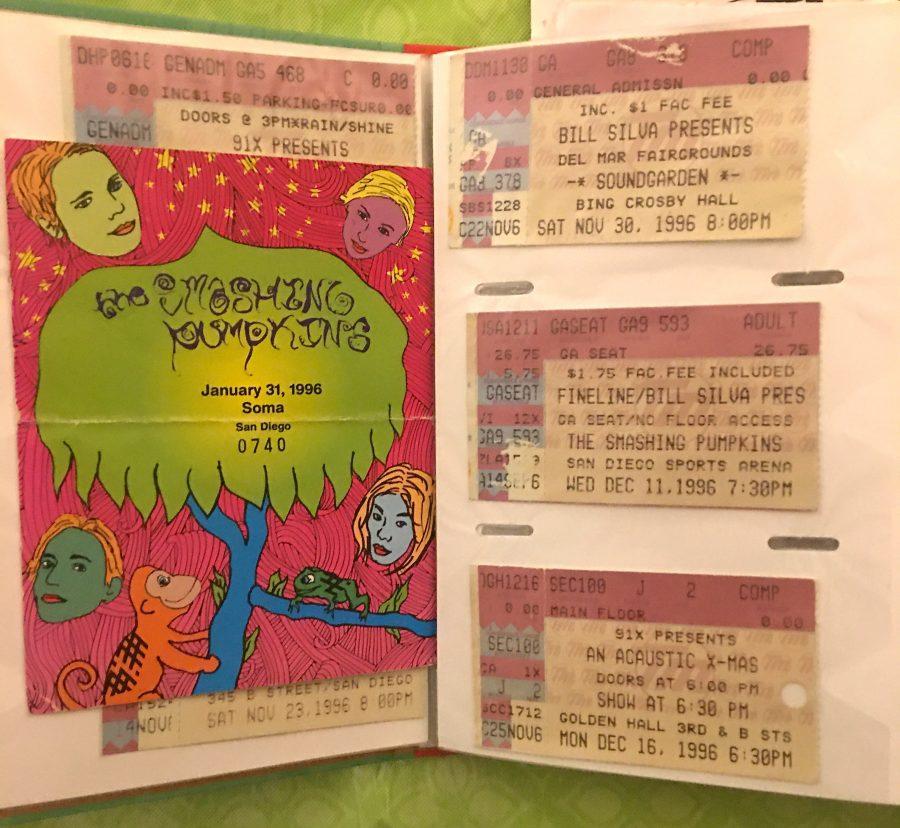 DHP0616 GENADM GA5 468 C 0.00
0.00 INC$1.50 PARKING+FCSUR0.00
DOORS @ 3PM*RAIN/SHINE
GENADM
91X PRESENTS
the SMASHING
PUMPKINS
January 31, 1996
Soma
San Diego
0740
345 B STREET/SAN DIEGO
4NOV6
SAT NOV 23,1996 8 00PM
DDM1130 GA COMP
0.00 GENERAL ADMISSN 0.00
INC. $1 FAC FEE
GA
BILL SILVA PRESENTS
8X
DEL MAR FAIRGROUNDS
GA8 378
-* SOUNDGARDEN *-
SBS1228
BING CROSBY HALL
C22NOV6
SAT NOV 30, 1996 8:00PM
USA1211 GASEAT GA9 593 ADULT
26.75 GA SEAT 26.75
5.75
$1.75 FAC.FEE INCLUDED
GASEAT
FINELINE/BILL SILVA PRES
VI 12X
GA SEAT/NO FLOOR ACCESS
GA9 593
THE SMASHING PUMPKINS
SAN DIEGO SPORTS ARENA
A14SEP6
WED DEC 11,1996 7:30PM
DGH1216 SEC100 J 2 COMP
0 00 MAIN FLOOR 0.00
91X PRESENTS
SEC100
AN ACAUSTIC X-MAS
CA 1X
DOORS AT 6:00 PM
J 2
SHOW AT 6:30 PM
SCC1712
GOLDEN HALL 3RD & B STS
C25NOV6
MON DEC 16, 1996 6:30PM